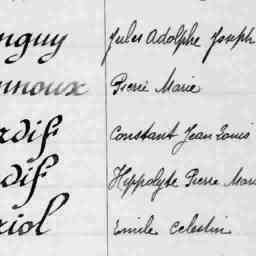 nguy Jules Adolphe Joseph
nnoux Pierre Marie
rdif Constant Jean Louis
dif Hippolyte Pierre Mari
riol Emile Celestin